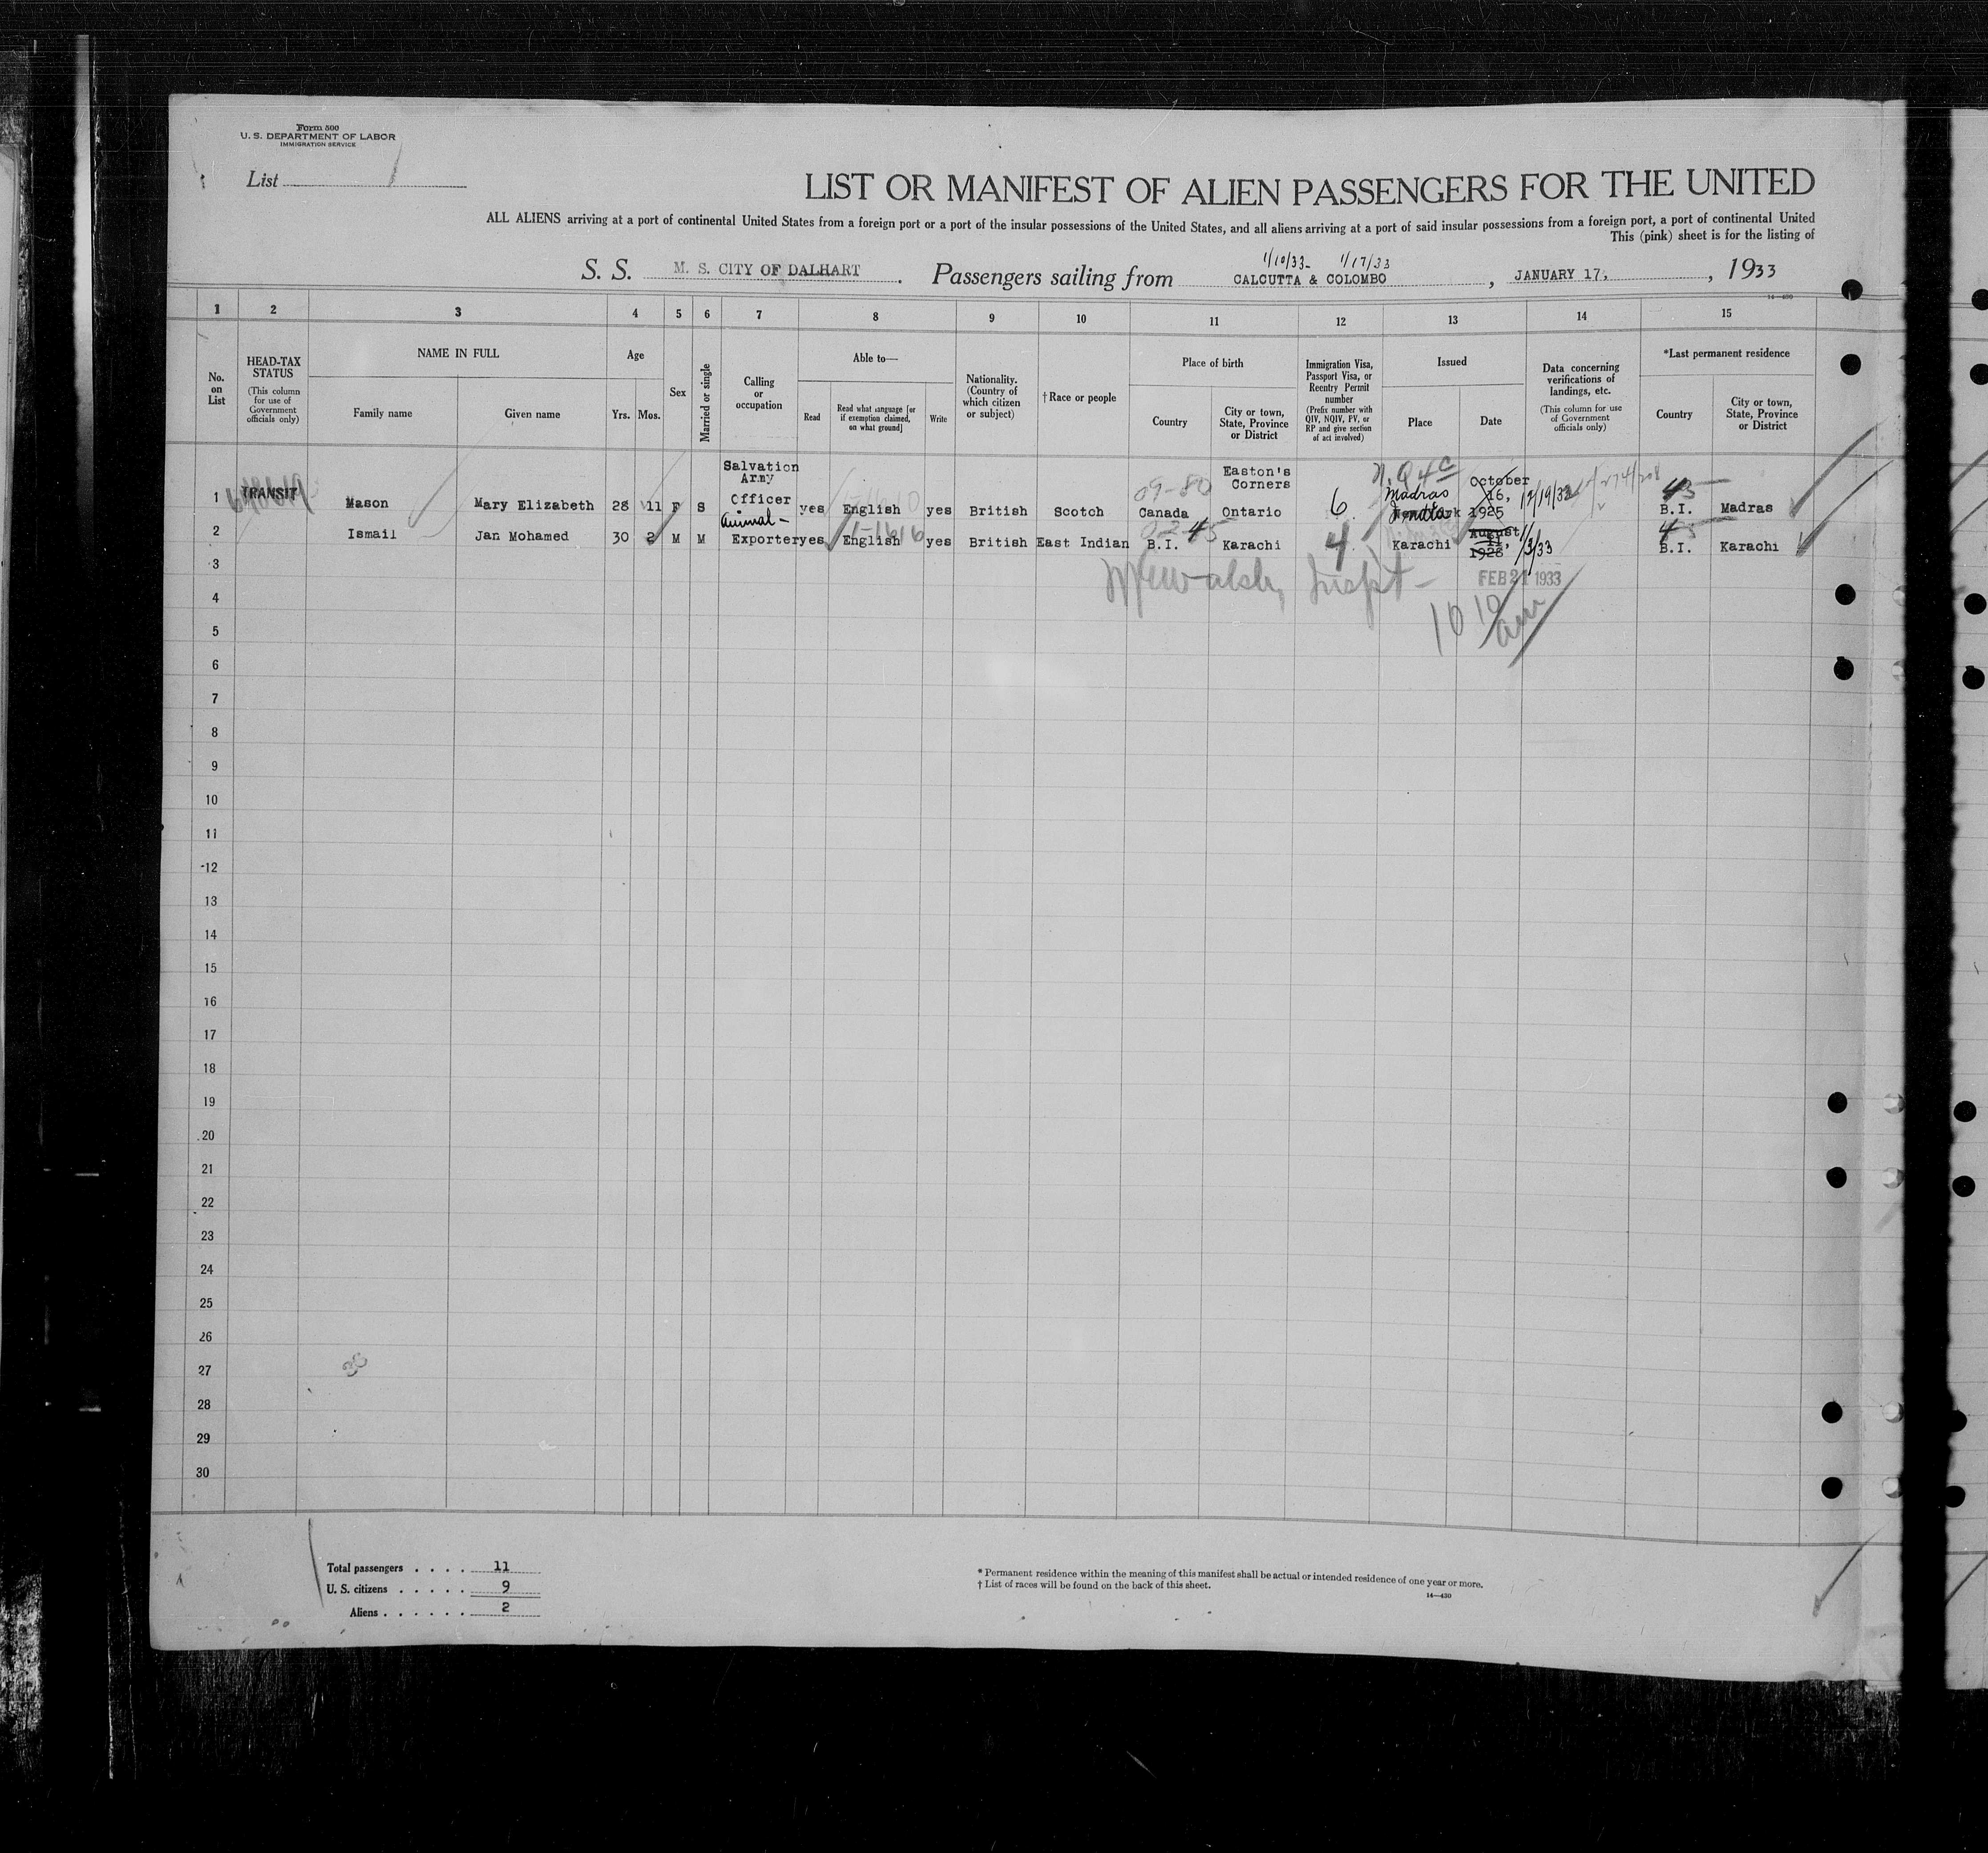 Form 500
U. S. DEPARTMENT OF LABOR
IMMIGRATION SERVICE
List 1
LIST OR MANIFEST OF ALIEN PASSENGERS FOR THE UNITED
ALL ALIENS arriving at a port of continental United States from a foreign port or a port of the insular possessions of the United States, and all aliens arriving at a port of said insular possessions from a foreign port, a port of continental United
This (pink) sheet is for the listing of
1/10/33- 1/17/33
S. S. M. S. CITY OF DALHART. Passengers sailing from CALCUTTA & COLOMBO, JANUARY 17, , 1933
14—430
1 2 3 4 5 6 7 8 9 10 11 12 13 14 15
No. on List
HEAD-TAX STATUS
(This column for use of Government officials only)
NAME IN FULL
Family name
Given name
Age
Yrs.
Mos.
Sex
Married or single
Calling or occupation
Able to—
Read
Read what language [or if exemption claimed, on what ground]
Write
Nationality. (Country of which citizen or subject)
†Race or people
Place of birth
Country
City or town, State, Province or District
Immigration Visa, Passport Visa, or Reentry Permit number
(Prefix number with QIV, NQIV, PV, or RP and give section of act involved)
Issued
Place
Date
Data concerning verifications of landings, etc.
(This column for use of Government officials only)
*Last permanent residence
Country
City or town, State, Province or District
1 TRANSIT Mason Mary Elizabeth 28 11 F S Salvation Army Officer yes English yes British Scotch 09-80 Canada Easton's Corners Ontario 6 Madras India October 16, 1925 12/19/32 45 B.I. Madras
2 Ismail Jan Mohamed 30 2 M M Animal- Exporter yes English yes British East Indian B.I. Karachi 4 Karachi August 11, 1928 1/3/33 45 B.I. Karachi
3
Walsh, Inspt-
FEB 21 1933
10 10 am
4
5
6
7
8
9
10
11
12
13
14
15
16
17
18
19
20
21
22
23
24
25
26
27
28
29
30
Total passengers . . . . . 11
U. S. citizens . . . . . 9
Aliens . . . . . . 2
* Permanent residence within the meaning of this manifest shall be actual or intended residence of one year or more.
† List of races will be found on the back of this sheet.
14—430